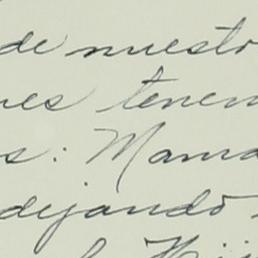 de nuestro
nes tenem
s: Mama
dejando